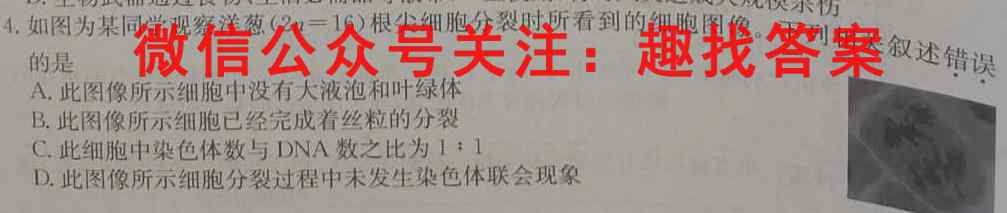 4. 如图为某同学观察洋葱(2n=16)根尖细胞分裂时所看到的细胞图像。下列相关叙述错误
微信公众号关注：趣找答案
的是
A. 此图像所示细胞中没有大液泡和叶绿体
B. 此图像所示细胞已经完成着丝粒的分裂
C. 此细胞中染色体数与 DNA 数之比为 1∶1
D. 此图像所示细胞分裂过程中未发生染色体联会现象